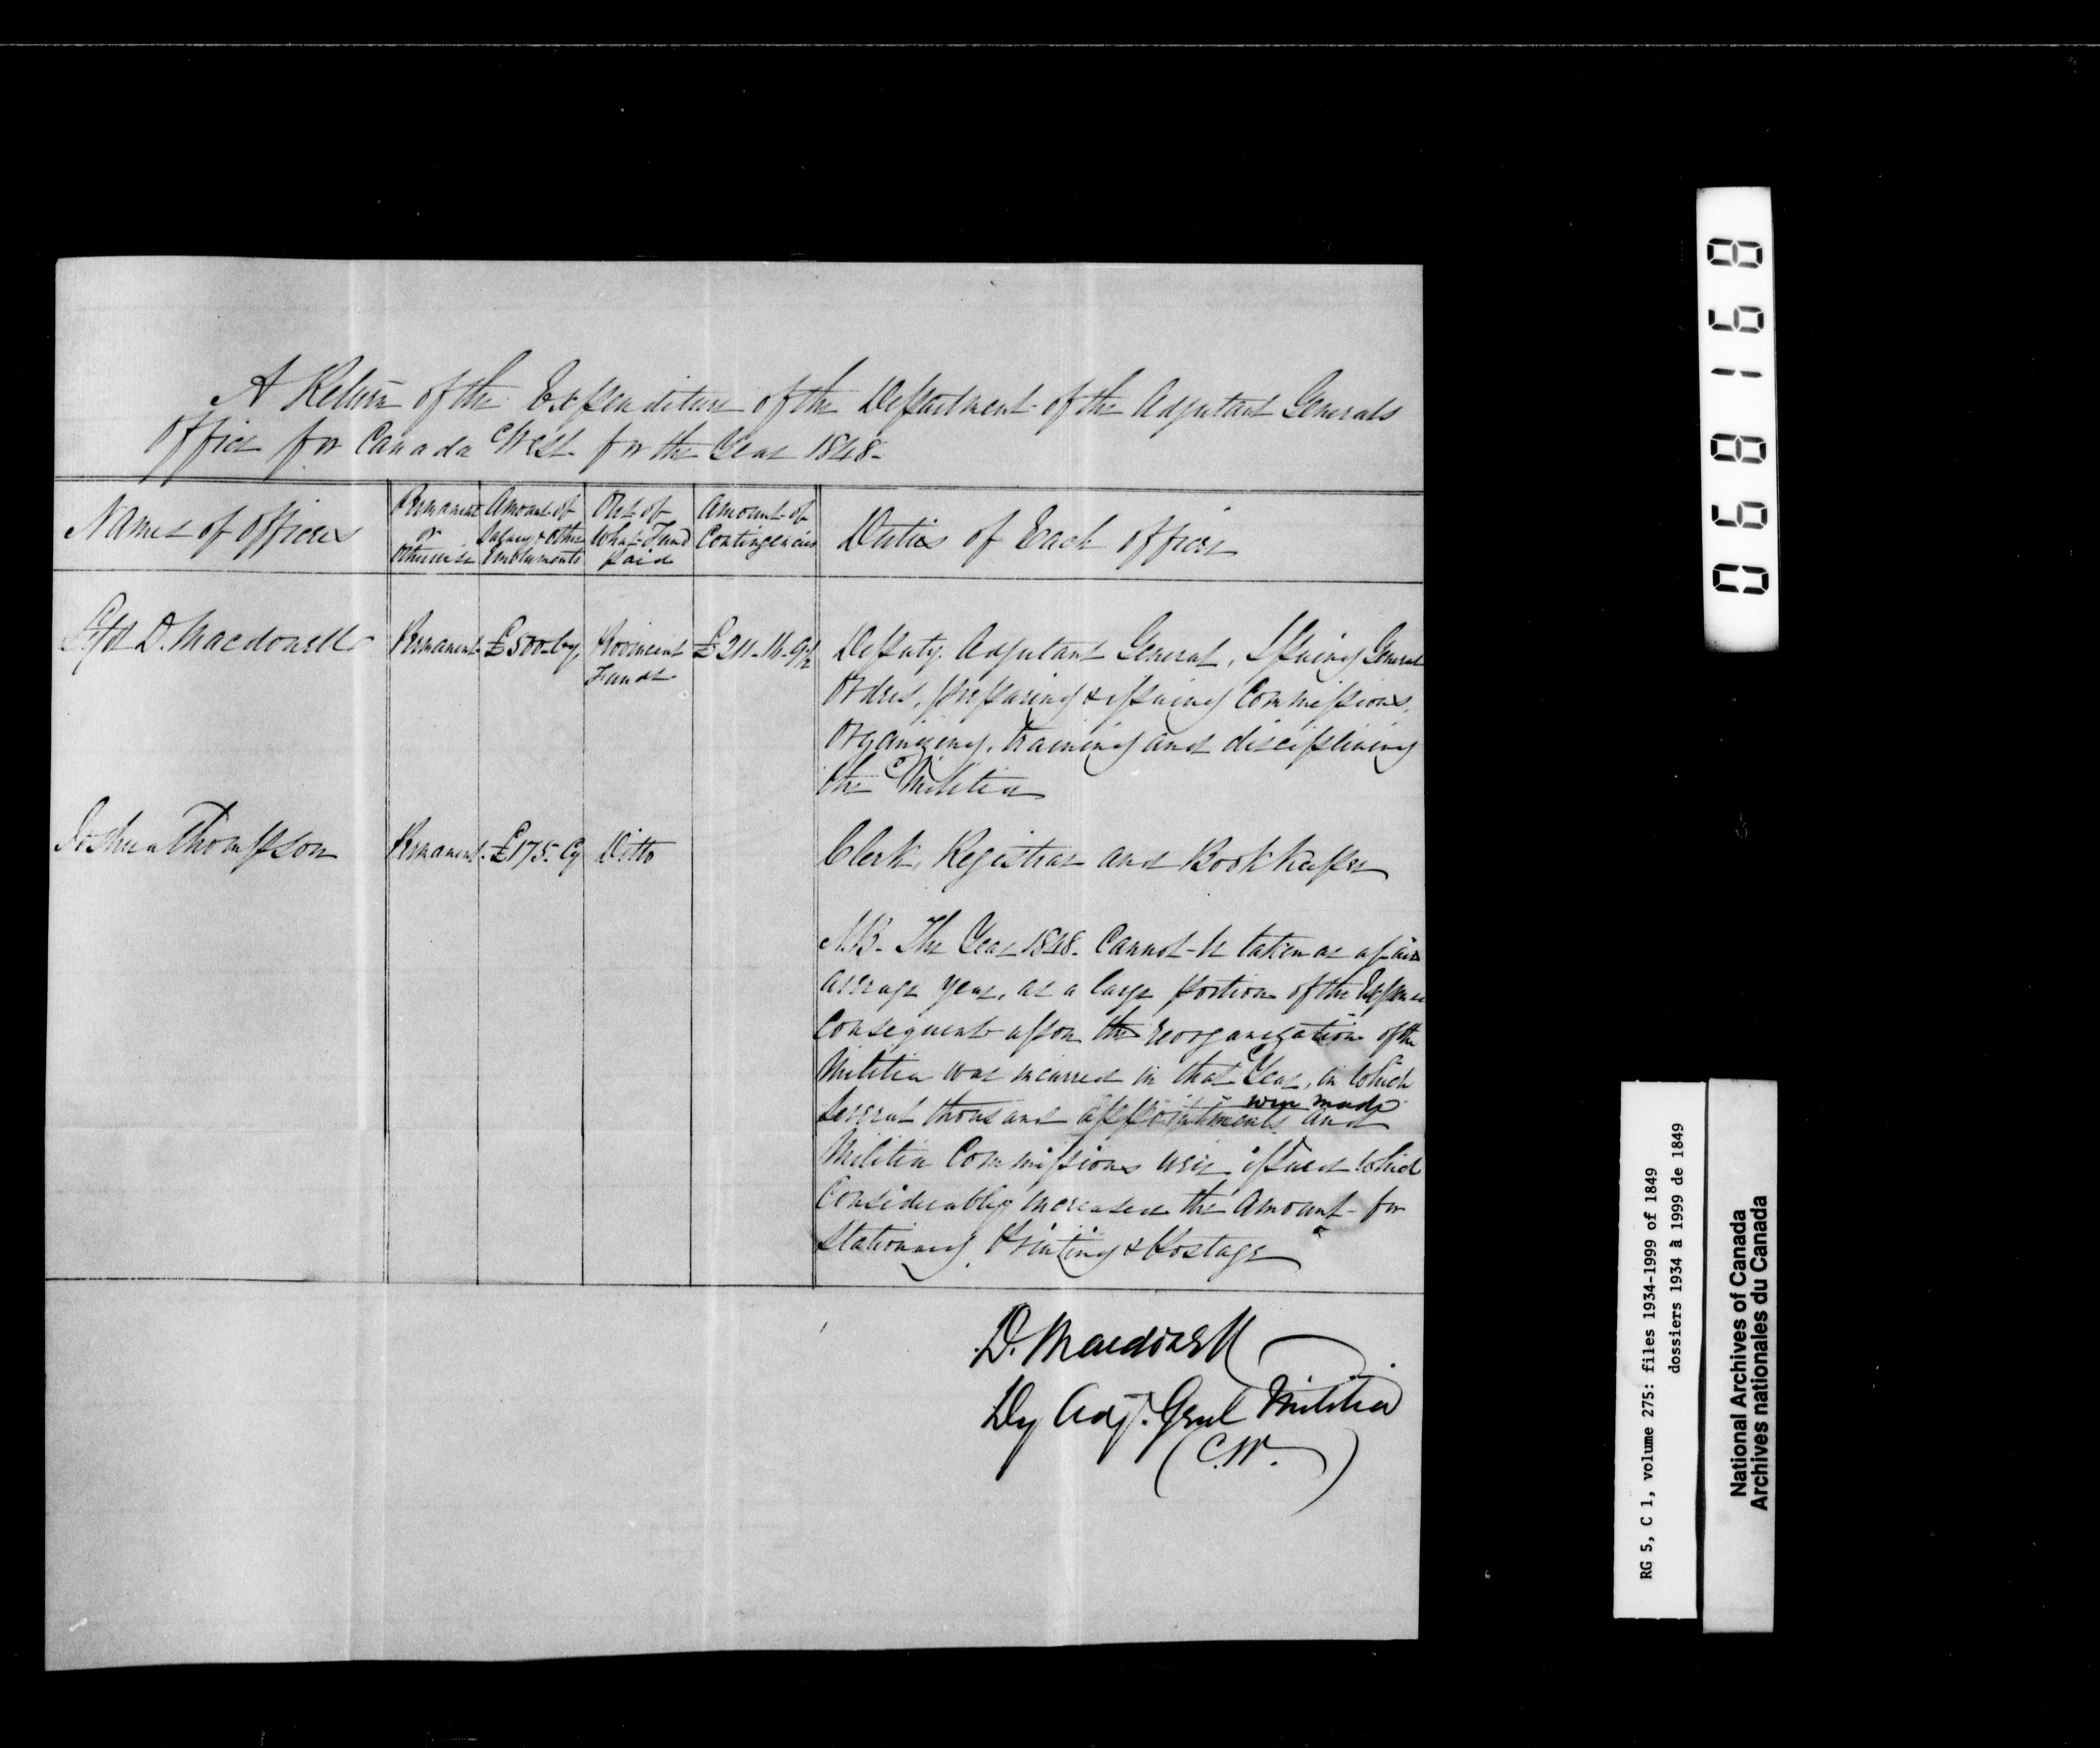 A Return of the Expenditure of the Department of the Adjutant Generals
Office for Canada West for the Year 1848-
Names of officers
Permanent or otherwise
Amount of Salary & other Emoluments
Out of What Fund paid
Amount of Contingencies
Duties of Each officer
D. Macdonell
Permanent
£500 Cy
Provincial Funds
£211-16-9½
Deputy Adjutant General, Issuing General
Orders, preparing & issuing Commissions,
Organizing, training and disciplining
the Militia
Joshua Thompson
Permanent
£175- Cy
Ditto
Clerk, Registrar and Book keeper
N.B- The Year 1848- Cannot be taken as a fair
average year, as a large portion of the Expense
Consequent upon the reorganization of the
Militia was incurred in that Year, in which
were made
Several thousand appointments and
Militia Commissions were issued which
Considerably increased the Amount for
Stationary, Printing & Postage
D. Macdonell
Dy Adj. Genl Militia
(C.W.)
068168
RG 5, C 1, volume 275: files 1934-1999 of 1849
dossiers 1934 à 1999 de 1849
National Archives of Canada
Archives nationales du Canada